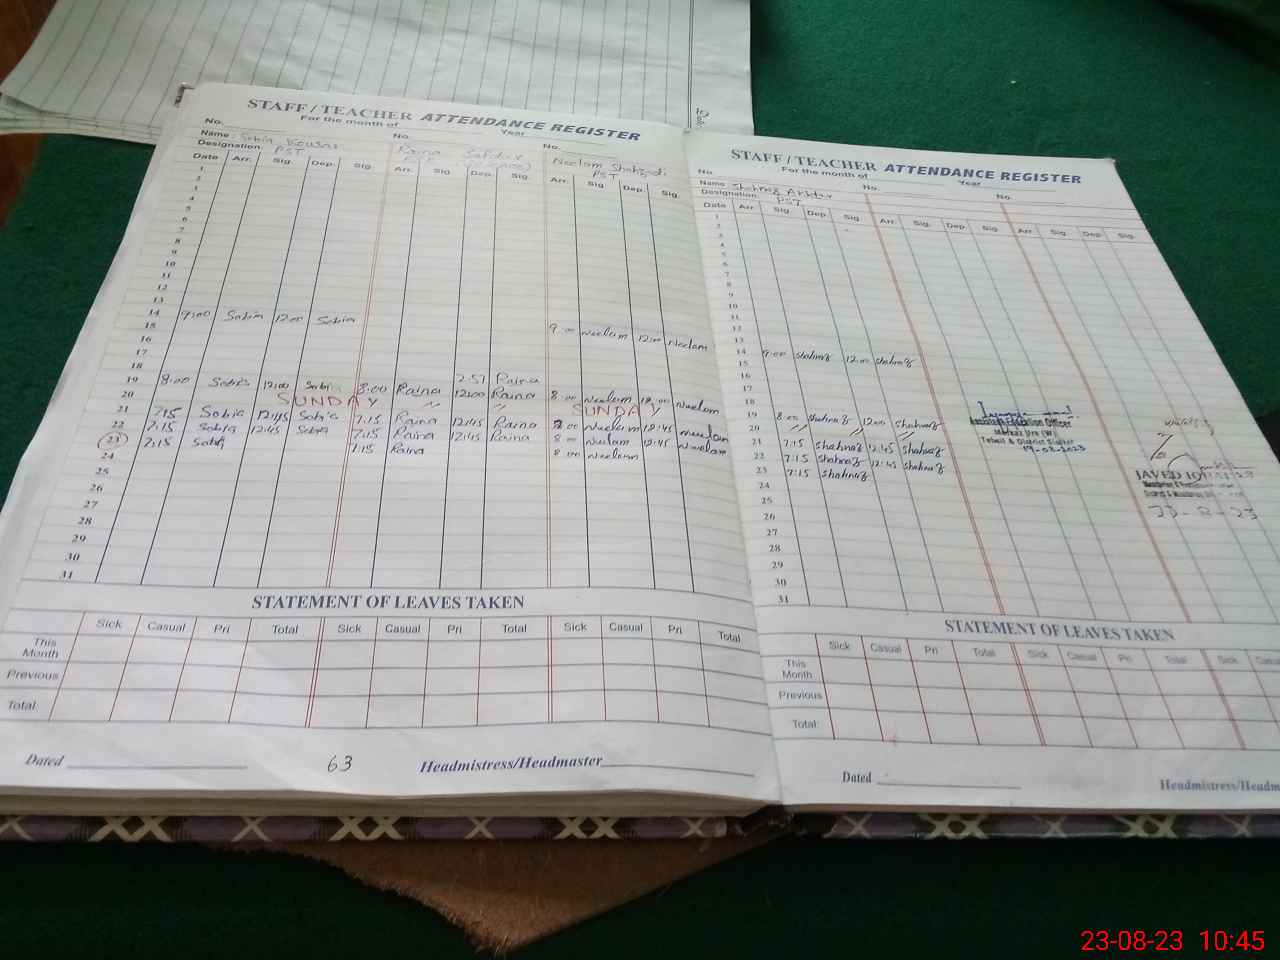 STAFF / TEACHER ATTENDANCE REGISTER
For the month of Year
No. No. No.
Name: Sabia Kousar Raina Safdar Neelam Shahzadi
Designation: PST PST
Date Arr. Sig. Dep. Sig. Arr. Sig. Dep. Sig. Arr. Sig. Dep. Sig.
1
2
3
4
5
6
7
8
9
10
11
12
13
14 9:00 Sabia 12:00 Sabia
15 9:00 Neelam 12:00 Neelam
16
17
18 2:51 Raina
19 8:00 Sabia 12:00 Sabia 8:00 Raina 12:00 Raina 8:00 Neelam 12:00 Neelam
20 SUNDAY " " SUNDAY
21 7:15 Sabia 12:45 Sabia 7:15 Raina 12:45 Raina 8:00 Neelam 12:45 Neelam
22 7:15 Sabia 12:45 Sabia 7:15 Raina 12:45 Raina 8:00 Neelam 12:45 Neelam
23 7:15 Sabia 7:15 Raina 8:00 Neelam
24
25
26
27
28
29
30
31
STATEMENT OF LEAVES TAKEN
Sick Casual Pri Total Sick Casual Pri Total Sick Casual Pri Total
This Month
Previous
Total
Dated 63 Headmistress/Headmaster
STAFF / TEACHER ATTENDANCE REGISTER
For the month of Year
No. No. No.
Name Shahnaz Akhtar
Designation PST
Date Arr. Sig. Dep. Sig. Arr. Sig. Dep. Sig. Arr. Sig. Dep. Sig.
1
2
3
4
5
6
7
8
9
10
11
12
13
14 9:00 Shahnaz 12:00 Shahnaz
15
16
17
18
19 8:00 Shahnaz 12:00 Shahnaz
20 " " " "
21 7:15 Shahnaz 12:45 Shahnaz
22 7:15 Shahnaz 12:45 Shahnaz
23 7:15 Shahnaz
24
25
26
27
28
29
30
31
Assistant Education Officer
Tehsil & District
19-08-2023
JAVED IQBAL
STATEMENT OF LEAVES TAKEN
Sick Casual Pri Total Sick Casual Pri Total Sick
This Month
Previous
Total:
Dated Headmistress/Headm
23-08-23 10:45